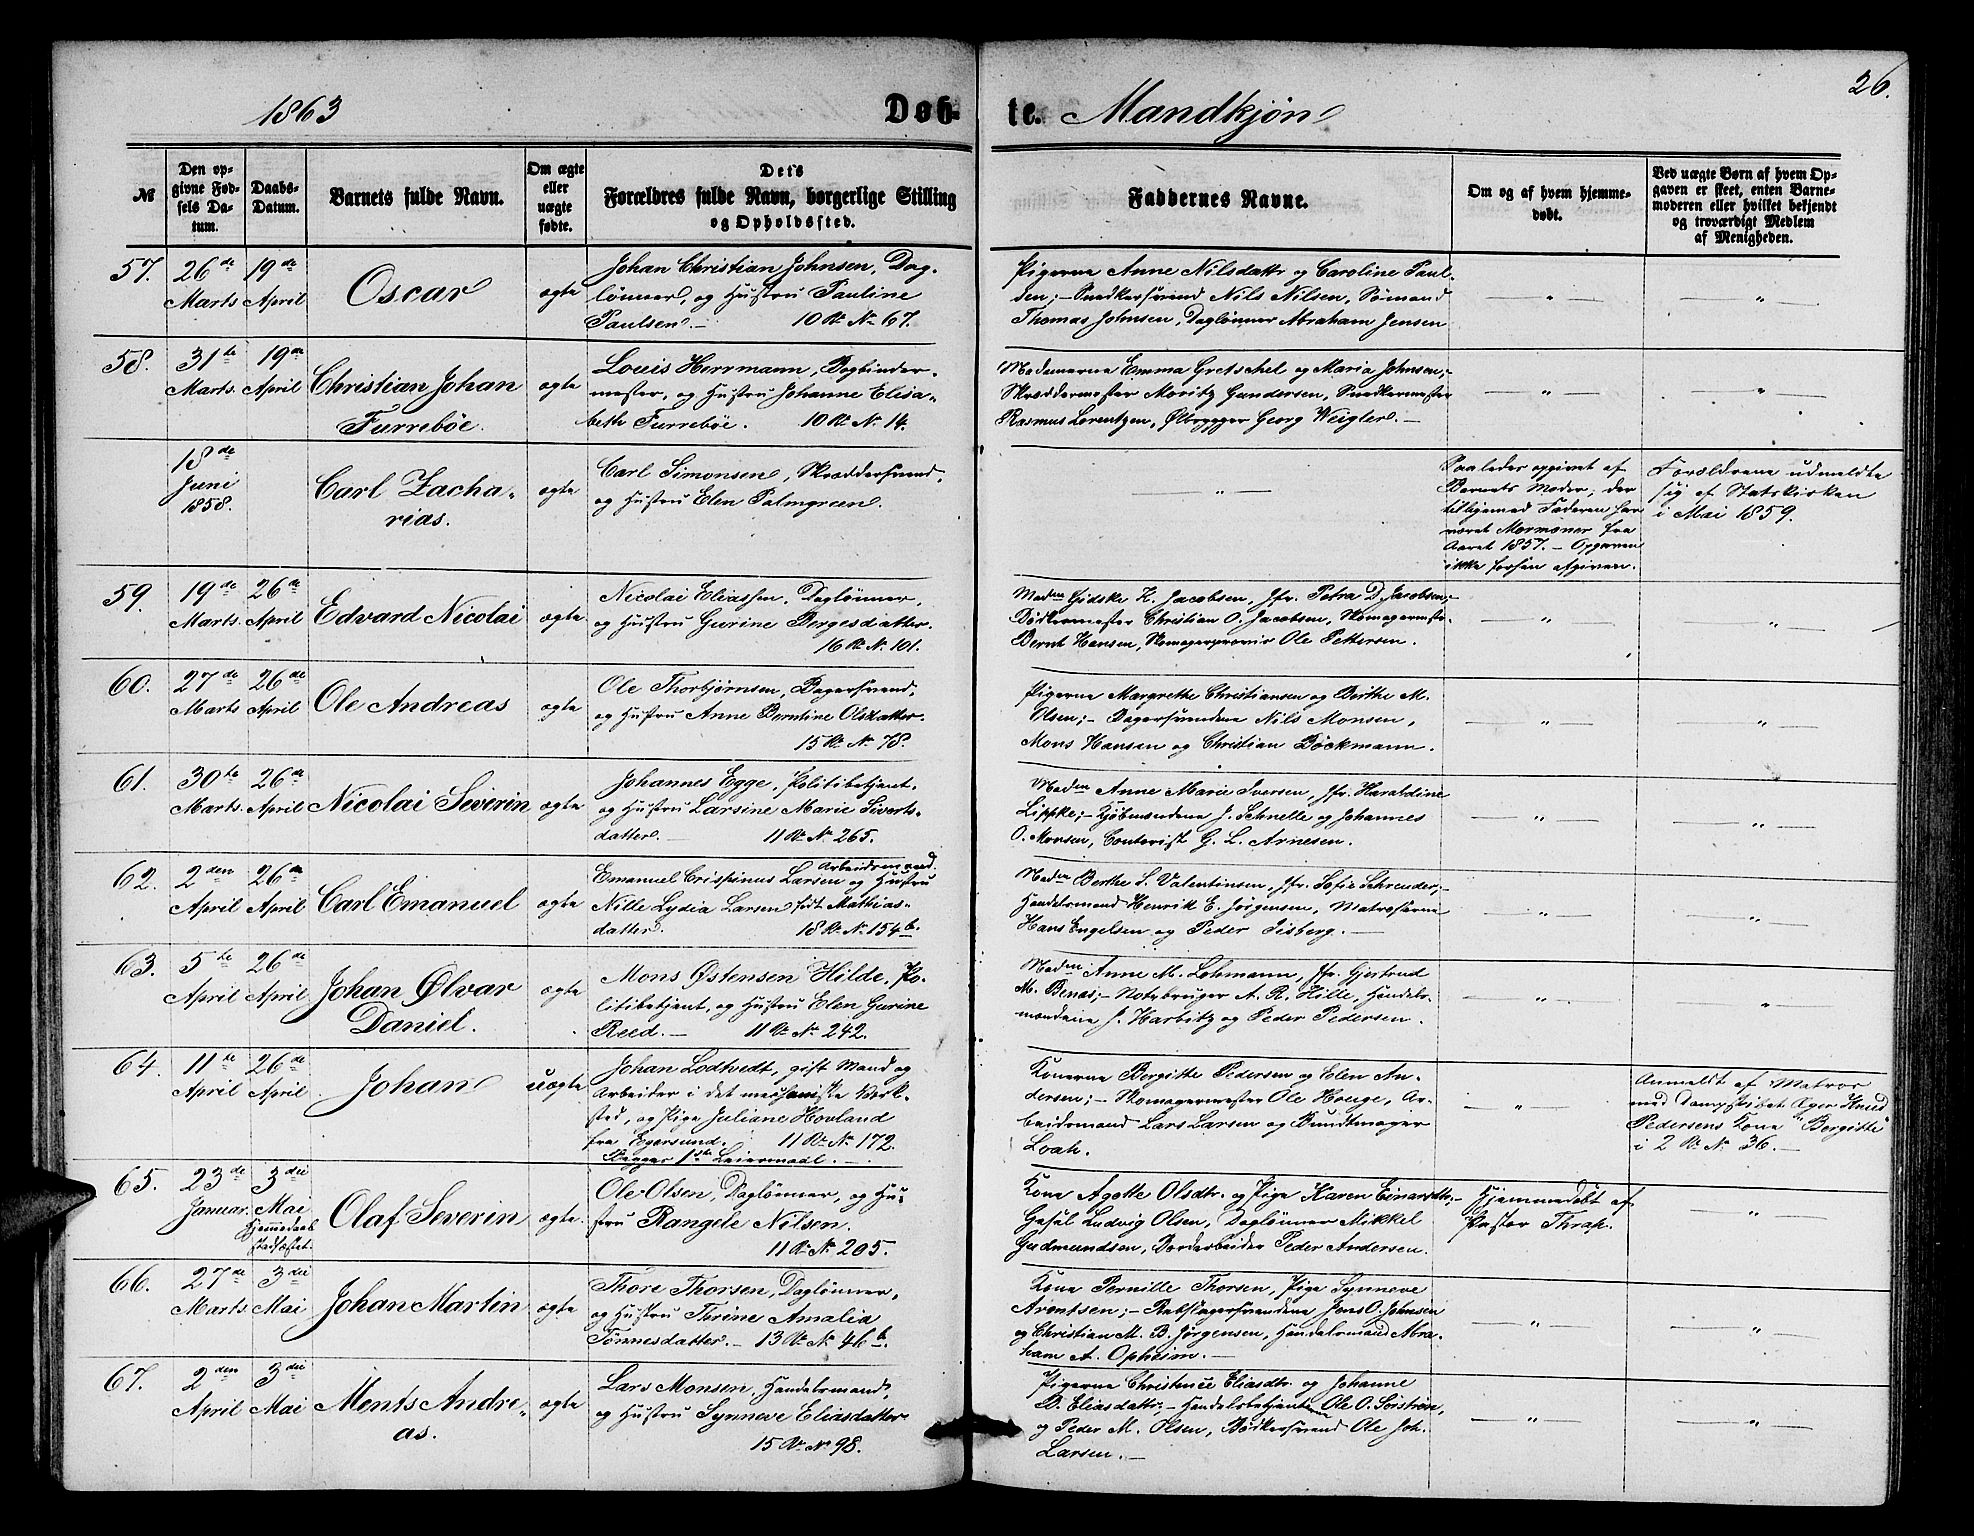 1863
Døb-
te. Mandkjøn
26.
№
Den op-
givne Fød-
sels Da-
tum.
Daabs-
Datum.
Barnets fulde Navn.
Om ægte
eller
uægte
fødte.
Dets
Forældres fulde Navn, borgerlige Stilling
og Opholdssted.
Faddernes Navne.
Om og af hvem hjemme-
døbt.
Ved uægte Børn af hvem Op-
gaven er skeet, enten Barne-
moderen eller hvilket bekjendt
og troværdigt Medlem
af Menigheden.
57.
26de
Marts
19de
April
Oscar
ægte
Johan Christian Johnsen, Dag-
lønner, og Hustru Pauline
Paulsen. – 10 R. N. 67.
Pigerne Anne Nilsdattr og Caroline Paul-
sen; – Snedkersvend Nils Nilsen, Sømand
Thomas Johnsen, Daglønner Abraham Jensen
58.
31te
Marts.
19de
April
Christian Johan
Furrebøe.
ægte
Louis Herrmann, Bogbinder-
mester, og Hustru Johanne Elisa-
beth Furrebøe. 10 R. N. 14.
Madamerne Emma Gretschel og Maria Johnsen; –
Skræddermester Moritz Gundersen, Snedkermester
Rasmus Lorentzen, Ølbrygger Georg Weigler. –
18de
Juni
1858.
Carl Zacha-
rias.
ægte
Carl Simonsen, Skræddersvend,
og Hustru Elen Palmgreen.
Saaledes opgivet af
Barnets Moder, der
tilligemed Faderen har
været Mormoner fra
Aaret 1857. – Opgaven
ikke forhen afgiven.
Forældrene udmeldte
sig af Statskirken
i Mai 1859.
59.
19de
Marts.
26de
April
Edvard Nicolai
ægte
Nicolai Eliassen, Daglønner,
og Hustru Gurine Bergesdatter.
16 R. N. 101.
Madm Gidske K. Jacobsen, Jfr. Petra D. Jacobsen; –
Bødkermester Christian O. Jacobsen, Skomagermestr.
Bernt Hansen, Skomagersvend Ole Pettersen.
60.
27de
Marts
26de
April
Ole Andreas
ægte
Ole Thorbjørnsen, Bagersvend,
og Hustru Anne Berntine Olsdatter.
15 R. N. 78.
Pigerne Margrethe Christiansen og Berthe M.
Olsen; – Bagersvendene Nils Monsen,
Mons Hansen og Christian Böckmann.
61.
30te
Marts.
26de
April
Nicolai Severin
ægte
Johannes Egge, Politibetjent,
og Hustru Larsine Marie Siverts-
datter. – 11 R. N. 265.
Madm Anne Marie Iversen, Jfr. Haraldine
Lippke; – Kjøbmændene J. Schnelle og Johannes
O. Monsen, Contorist G. L. Arnesen.
62.
2den
April
26de
April
Carl Emanuel
ægte
Arbeidsmand
Emanuel Crispinus Larsen og Hustru
Nille Lydia Larsen født Mathias-
datter. 18 R. N. 154 b.
Madm Berthe S. Valentinsen, Jfr. Sofie Schreuder; –
Handelsmand Henrik E. Jørgensen, Matroserne
Hans Engelsen og Peder Sisberg. –
63.
5te
April
26de
April
Johan Ølvar
Daniel.
ægte
Mons Østensen Hilde, Po-
litibetjent, og Hustru Elen Gurine
Reed. – 11 R. N. 242.
Madm Anne M. Lohmann, Jfr. Gjertrud
M. Benas; – Notebruger A. R. Hille, Handels-
mændene J. Harbitz og Peder Pedersen.
64.
11te
April
26de
April
Johan
uægte
Johan Lodtvedt, gift Mand og
Arbeider i det mechaniske Værk-
sted, og Pige Juliane Hovland
fra Egersund. 11 R. N. 172.
Begges 1ste Leiermaal. –
Konerne Bergitte Pedersen og Elen An-
dersen; – Skomagermester Ole Houge, Ar-
beidsmand Lars Larsen og Bundtmager
Loah.
Anmeldt af Matros
med Dampskibet Ægir Knud
Pedersens Kone "Bergitte"
i 2 R. N. 36. –
65.
23de
Januar.
3die
Mai
Hjemmedaab
stadfæstet.
Olaf Severin
ægte.
Ole Olsen, Daglønner, og Hu-
stru Rangele Nilsen.
11 R. N. 205.
Kone Agotte Olsdtr. og Pige Karen Einarsdtr; –
Gesel Ludvig Olsen, Daglønner Mikkel
Gudmundsen, Bordarbeider Peder Andersen.
Hjemmedøbt af
Pastor Thrap.
66.
27de
Marts.
3die
Mai
Johan Martin
ægte
Thore Thorsen, Daglønner,
og Hustru Thrine Amalia
Tønnesdatter. – 13 R. N. 46 b.
Kone Pernille Thorsen, Pige Synneve
Arentsen; – Rebslagersvendene Jens O. Johnsen
og Christian M. B. Jørgensen, Handelsmand Abra-
ham A. Opheim. –
67.
2den
April
3die
Mai
Ments Andre-
as.
ægte
Lars Monsen, Handelsmand,
og Hustru Synneve Eliasdatter
15 R. N. 98.
Pigerne Christence Eliasdtr. og Johanne
B. Eliasdattr. – Handelsbetjentene Ole O. Sørstrøn,
og Peder M. Olsen, Bødkersvend Ole Joh.
Larsen. –